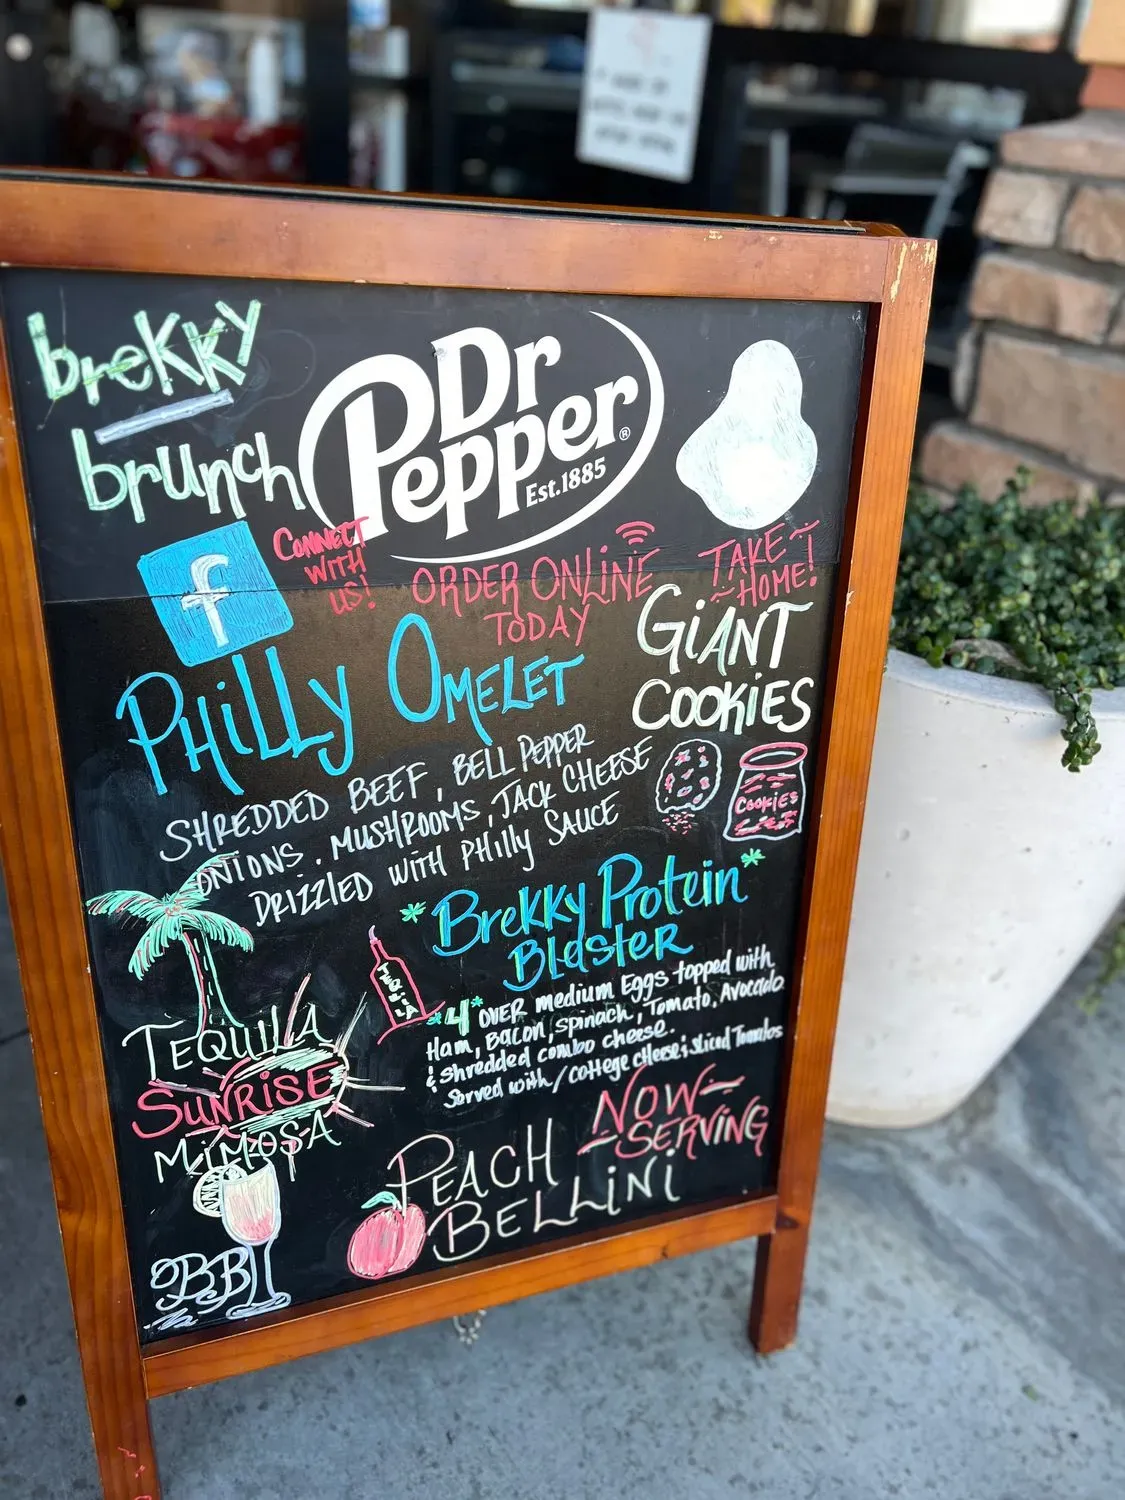 brekky
brunch
Dr
Pepper®
Est.1885
f
CONNECT
WITH
US!
ORDER ONLINE
TODAY
TAKE
HOME!
GIANT
COOKIES
COOKIES
PHILLY OMELET
SHREDDED BEEF, BELL PEPPER
ONIONS, MUSHROOMS, JACK CHEESE
DRIZZLED WITH PHILLY SAUCE
*Brekky Protein*
Blaster
*4* OVER medium Eggs topped with
Ham, Bacon, Spinach, Tomato, Avocado
& shredded combo cheese.
Served with/cottege cheese & sliced Tomatos
TEQUILA
TEQUILA
SUNRISE
MIMOSA
NOW
SERVING
PEACH
BELLINI
BB